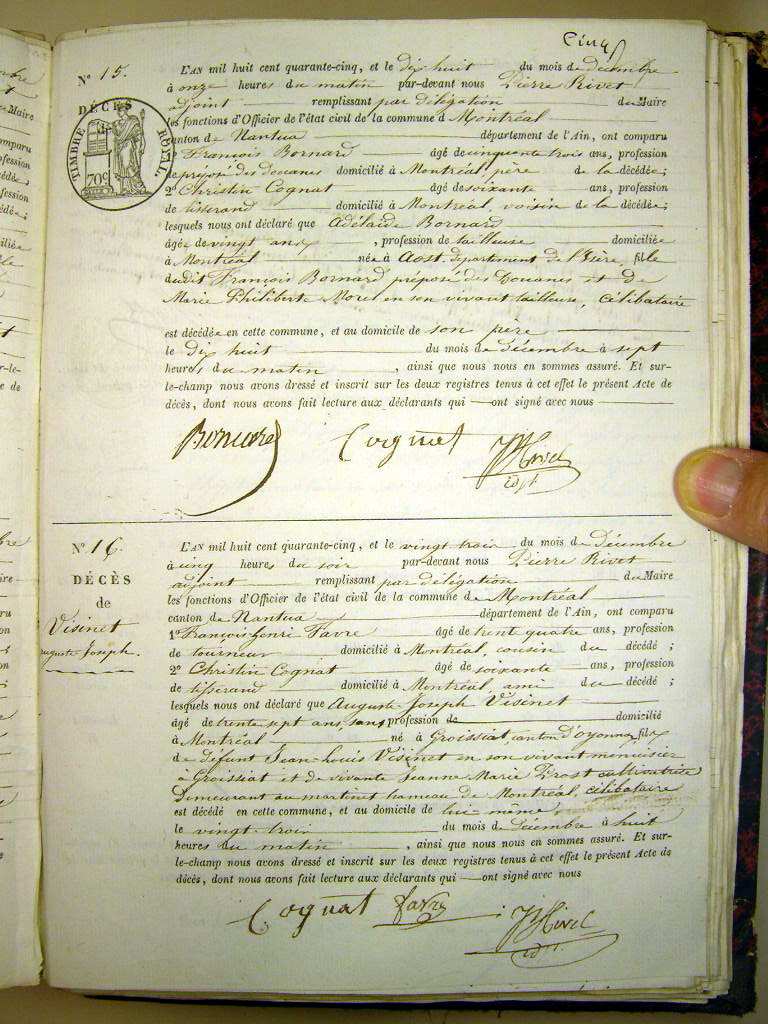 Cinq
N° 15.
DÉCÈS
TIMBRE ROYAL
70c
L'AN mil huit cent quarante-cinq, et le dix huit du mois de décembre
à onze heures du matin par-devant nous Pierre Rivet
adjoint remplissant par délégation du Maire
les fonctions d'Officier de l'état civil de la commune de Montréal
canton de Nantua département de l'Ain, ont comparu
1° François Bornard âgé de cinquante trois ans, profession
de préposé des douanes domicilié à Montréal père de la décédée;
2° Christin Cognat âgé de soixante ans, profession
de tisserand domicilié à Montréal, voisin de la décédée;
lesquels nous ont déclaré que Adélaïde Bornard
âgée de vingt ans, profession de tailleuse domiciliée
à Montréal née à Aost, département de l'Isère, fille
dudit François Bornard préposé des Douanes et de
Marie Philiberte Morel en son vivant tailleuse, célibataire
est décédée en cette commune, et au domicile de son père
le dix huit du mois de décembre à sept
heures du matin, ainsi que nous nous en sommes assuré. Et sur-
le-champ nous avons dressé et inscrit sur les deux registres tenus à cet effet le présent Acte de
décès, dont nous avons fait lecture aux déclarants qui ont signé avec nous
Bornard Cognat Rivet
adjt
N° 16.
DÉCÈS
de
Visinet
auguste Joseph.
L'AN mil huit cent quarante-cinq, et le vingt trois du mois de Décembre
à cinq heures du soir par-devant nous Pierre Rivet
adjoint remplissant par délégation du Maire
les fonctions d'Officier de l'état civil de la commune de Montréal
canton de Nantua département de l'Ain, ont comparu
1° François henri Favre âgé de trent quatre ans, profession
de tourneur domicilié à Montréal, cousin du décédé;
2° Christin Cognat âgé de soixante ans, profession
de tisserand domicilié à Montréal, ami du décédé;
lesquels nous ont déclaré que Auguste Joseph Visinet
âgé de trente sept ans, sans profession de domicilié
à Montréal né à Groissiat, canton D'oyonnax, fils
de défunt Jean-Louis Visinet en son vivant menuisier
à Groissiat et de vivante Jeanne Marie Prost cultivatrice
demeurant au martinet hameau de Montréal, célibataire
est décédé en cette commune, et au domicile de lui-même
le vingt-trois du mois de décembre à huit
heures du matin, ainsi que nous nous en sommes assuré. Et sur-
le-champ nous avons dressé et inscrit sur les deux registres tenus à cet effet le présent Acte de
décès, dont nous avons fait lecture aux déclarants qui ont signé avec nous
Cognat favre Rivet
adjt